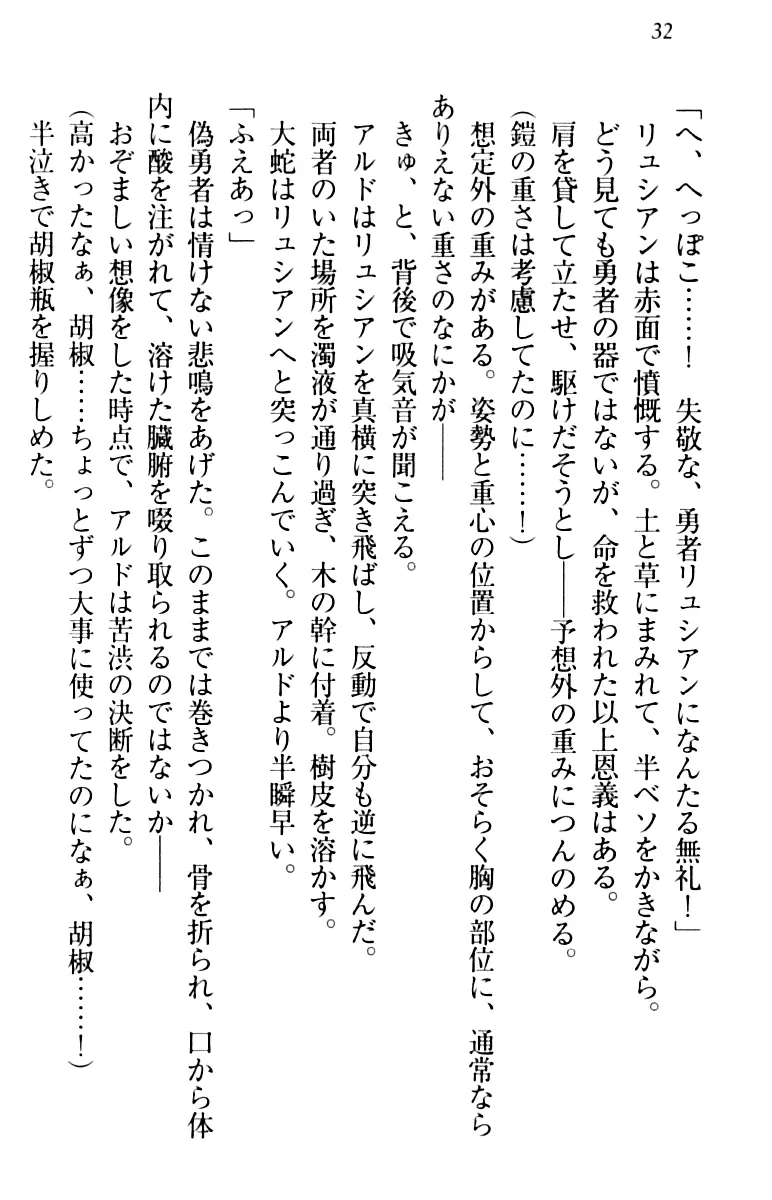 32
「へ、へっぽこ……！　失敬な、勇者リュシアンになんたる無礼！」
リュシアンは赤面で憤慨する。土と草にまみれて、半ベソをかきながら。
どう見ても勇者の器ではないが、命を救われた以上恩義はある。
肩を貸して立たせ、駆けだそうとし――予想外の重みにつんのめる。
（鎧の重さは考慮してたのに……！）
想定外の重みがある。姿勢と重心の位置からして、おそらく胸の部位に、通常なら
ありえない重さのなにかが――
きゅ、と、背後で吸気音が聞こえる。
アルドはリュシアンを真横に突き飛ばし、反動で自分も逆に飛んだ。
両者のいた場所を濁液が通り過ぎ、木の幹に付着。樹皮を溶かす。
大蛇はリュシアンへと突っこんでいく。アルドより半瞬早い。
「ふえあっ」
偽勇者は情けない悲鳴をあげた。このままでは巻きつかれ、骨を折られ、口から体
内に酸を注がれて、溶けた臓腑を啜り取られるのではないか――
おぞましい想像をした時点で、アルドは苦渋の決断をした。
（高かったなぁ、胡椒……ちょっとずつ大事に使ってたのになぁ、胡椒……！）
半泣きで胡椒瓶を握りしめた。